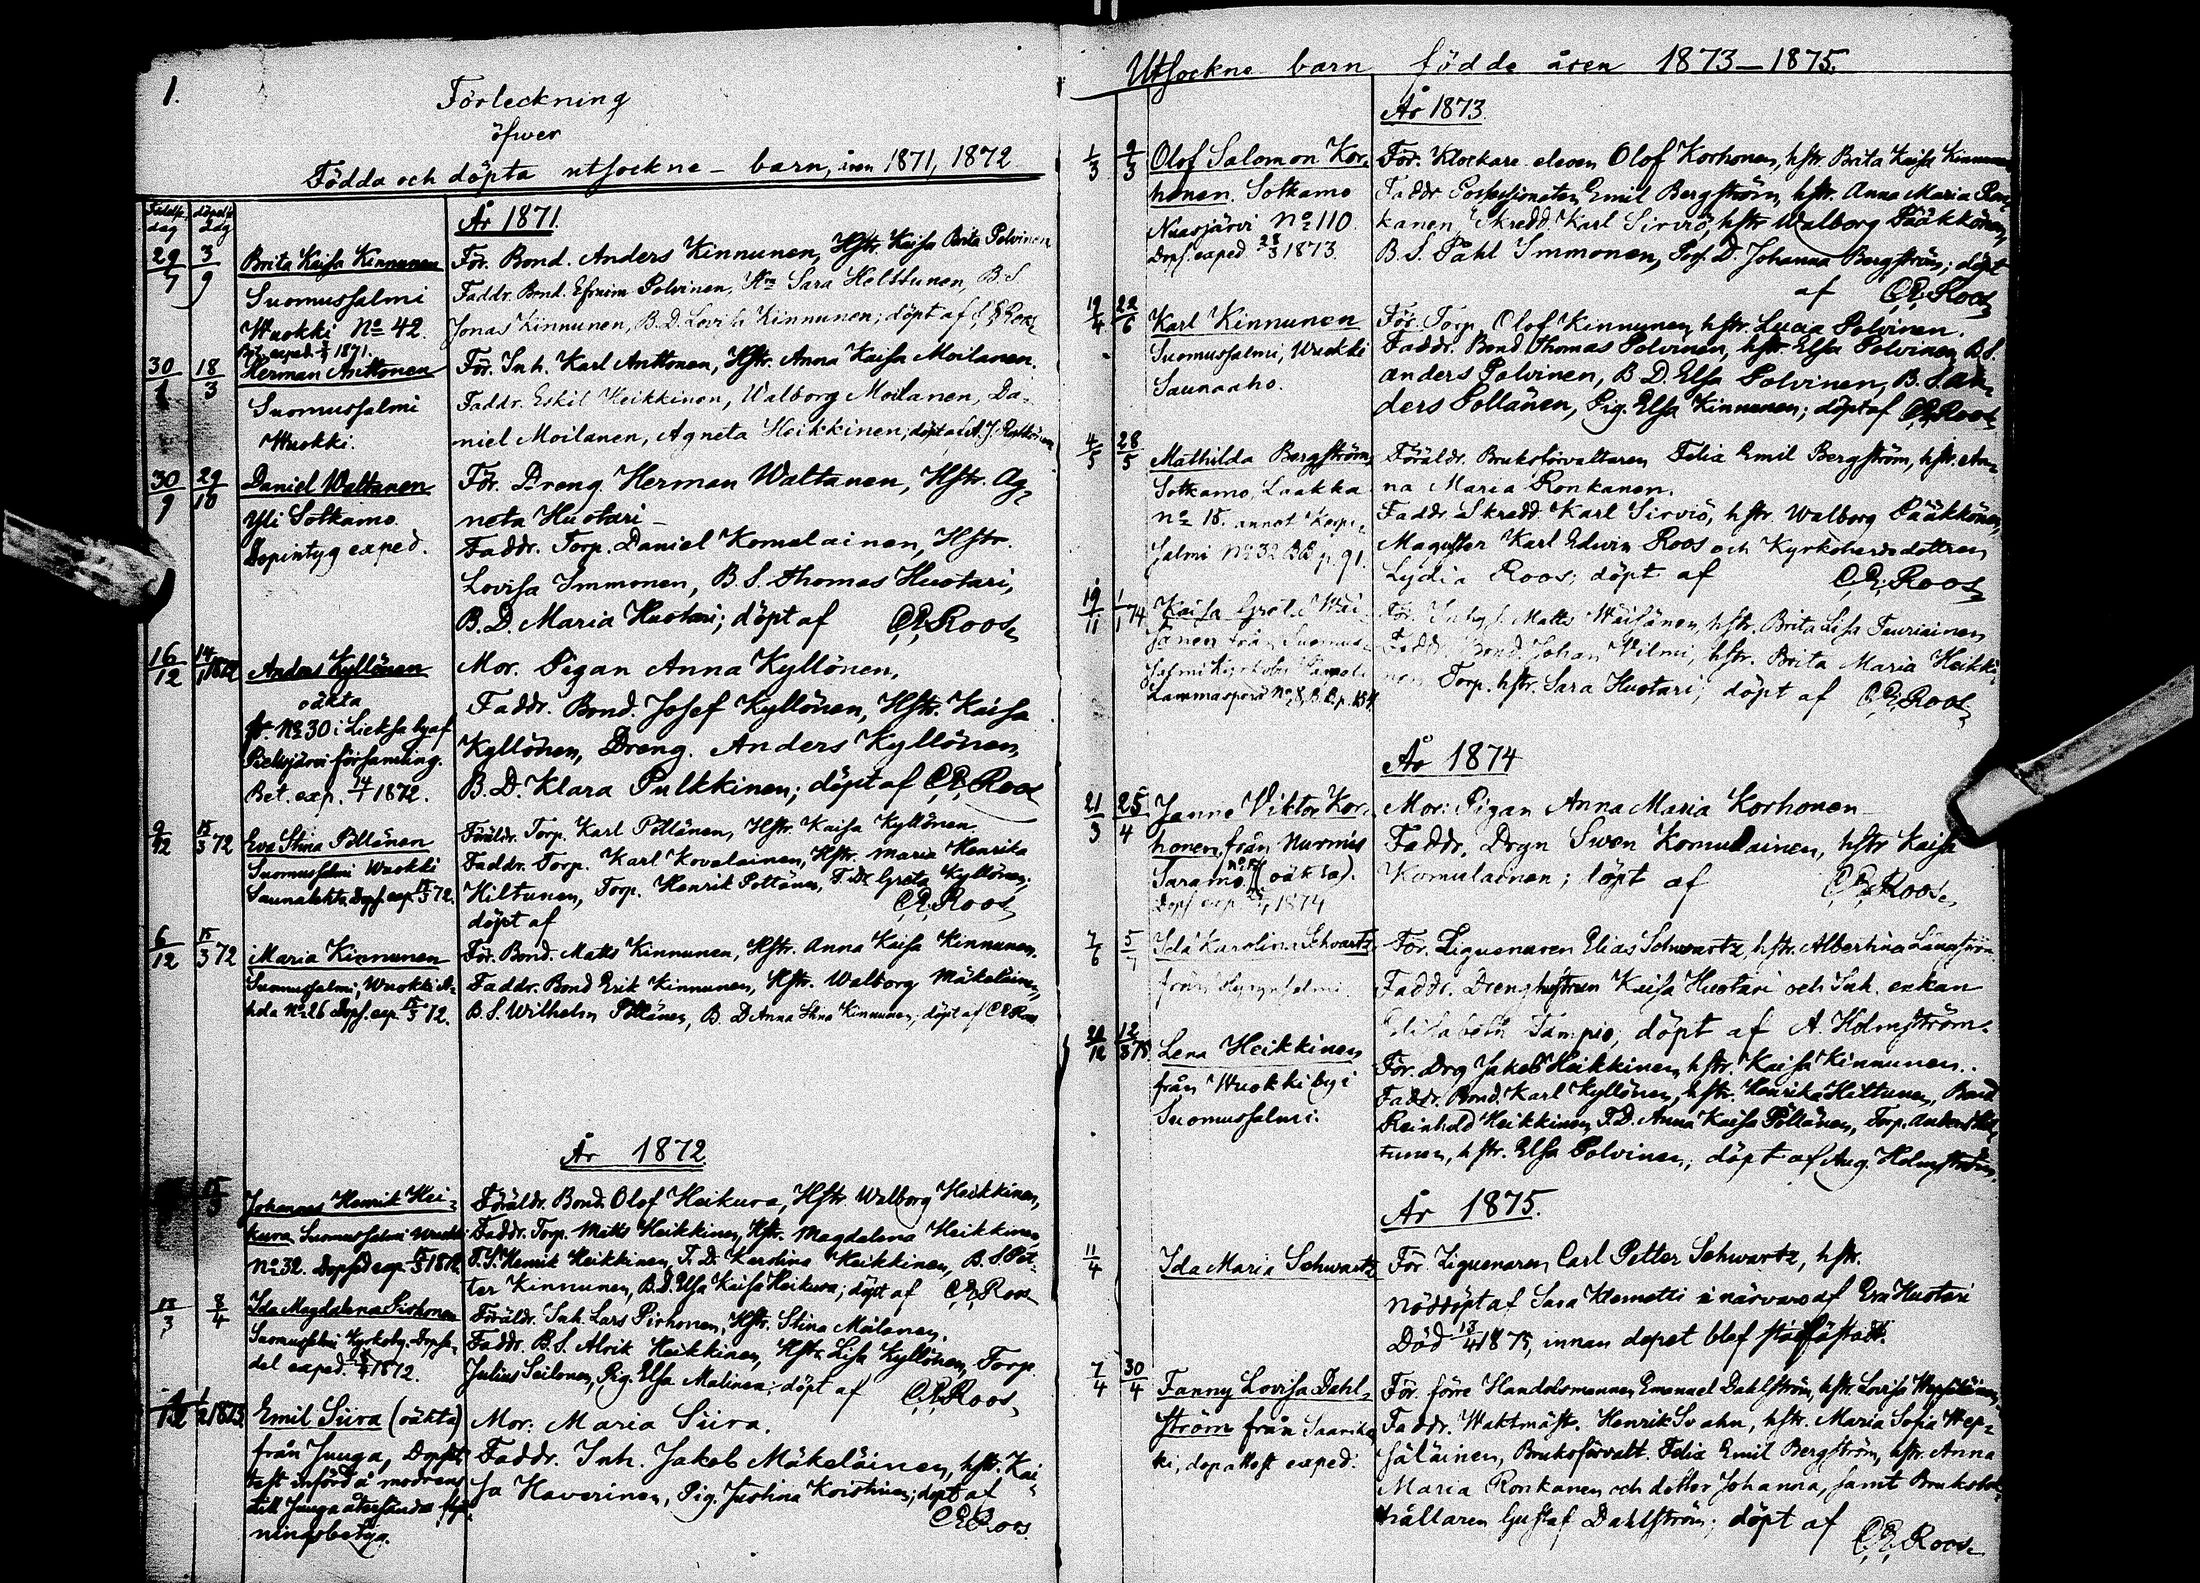 1.
Förteckning
öfwer
Födda och döpta utsockne - barn, åren 1871, 1872
År 1871.
29/7 3/9 Brita Kaisa Kinnunen
Suomussalmi
Wuokki No 42.
För. Bond. Anders Kinnunen, Hstr. Kaisa Brita Polvinen
Faddr. Bond. Efraim Polvinen, Sara Helttunen, B.S
Jonas Kinnunen, B.D. Lovisa Kinnunen; döpt af C.E. Roos
30/1 18/3 Herman Anttonen
Suomussalmi
Wuokki.
För. Inh. Karl Anttonen, Hstr. Anna Kaisa Moilanen.
Faddr. Eskil Heikkinen, Walborg Moilanen, Da-
niel Moilanen, Agneta Heikkinen; döpt af
30/9 29/10 Daniel Waltanen
Ylli Sotkamo.
Dopintyg exped.
För. Dreng Herman Waltanen, Hstr. Ag-
neta Huotari -
Faddr. Torp. Daniel Komulainen, Hstr.
Lovisa Immonen, B.S. Thomas Huotari,
B.D. Maria Huotari; döpt af C.E. Roos
16/12 14/1 1872 Anders Kyllönen
oäkta
fr. No 30 i Lieksa by af
Pielisjärvi församling.
Bet. exp. 14/1 1872.
Mor. Pigan Anna Kyllönen,
Faddr. Bond. Josef Kyllönen, Hstr. Kaisa
Kyllönen, Dreng. Anders Kyllönen,
B.D. Klara Pulkkinen; döpt af C.E. Roos
9/12 15/3 72 Eva Stina Pöllänen
Suomussalmi Wuokki
Saunalehto, Dops. exp. 15/3 72.
Föräldr. Torp. Karl Pöllänen, Hstr. Kaisa Kyllönen.
Faddr. Torp. Karl Kovalainen, Hstr. Maria Henrika
Hiltunen, Torp. Henrik Pöllänen, T.D. Greta Kyllönen;
döpt af C.E. Roos
6/12 15/3 72 Maria Kinnunen
Suomussalmi, Wuokki A-
hola No 26 Dops. exp. 15/3 72.
För. Bond. Matts Kinnunen, Hstr. Anna Kaisa Kinnunen.
Faddr. Bond Erik Kinnunen, Hstr. Walborg Mäkeläinen,
B.S. Wilhelm Pöllänen, B.D Anna Stina Kinnunen; döpt af C E Roos
År 1872
15/3 Johannes Henrik Hei-
kura Suomussalmi Wuokki
No 32. Dopsed exp. 15/3 1872.
Föräldr. Bond. Olof Heikura, Hstr. Walborg Heikkinen,
Faddr. Torp. Matts Heikkinen, Hstr. Magdalena Heikkinen
T.S. Henrik Heikkinen, T.D. Karolina Heikkinen, B.S Pet-
ter Kinnunen, B.D. Elsa Kaisa Heikura; döpt af C.E. Roos
18/3 8/4 Ida Magdalena Pirhonen
Suomussalmi Kyrkoby. Dopse-
del exped. 1872.
Föräldr. Inh. Lars Pirhonen, Hstr. Stina Moilanen.
Faddr. B.S. Alrik Heikkinen, Hstr. Lisa Kyllönen, Torp.
Julius Seilonen, Pig. Elsa Malinen; döpt af C.E. Roos
1873 Emil Siira (oäkta)
från Juuga, Dopat-
test införd å modrens
till Juuga återsända flytt-
ningsbetyg.
Mor: Maria Siira.
Faddr. Inh. Jakob Mäkeläinen, hstr. Kai-
sa Haverinen, Pig. Justina Koistinen; döpt af
C.E. Roos.
Utsockne barn födde åren 1873 - 1875.
År 1873.
1/3 9/3 Olof Salomon Kor-
honen. Sotkamo
Nuasjärvi No 110.
Dops. exped. 28/3 1873.
För. Klockare eleven Olof Korhonen, hstr Brita Kaisa Kinnunen
Faddr. Possessionaten Emil Bergström, hstr. Anna Maria Ron-
kanen, Skredd. Karl Sirviö, hstr Walborg Pääkkönen,
B.S. Påhl Immonen, D. Johanna Bergström; döpt
af C.E. Roos
19/4 22/6 Karl Kinnunen
Suomussalmi, Wuokki
Saunaaho.
För. Torp. Olof Kinnunen, hstr. Lucia Polvinen.
Faddr. Bond. Thomas Polvinen, hstr. Elsa Polvinen, B.S.
Anders Polvinen, B D. Elsa Polvinen, B.S. An-
ders Pöllänen, Pig. Elsa Kinnunen; döpt af C.E. Roos
4/5 28/5 Mathilda Bergström,
Sotkamo, Laakka
No 18. annot Korpi-
salmi No 32 BB p. 91.
Föräldr. Bruksförvaltaren Felix Emil Bergström, hstr. An-
na Maria Ronkanen.
Faddr. Skredd. Karl Sirviö, hstr. Walborg Pääkkönen,
Magister Karl Edwin Roos och Kyrkoherdedottren
Lydia Roos; döpt af C.E. Roos
19/11 1/1 74 Kaisa Greta Wäi-
sänen från Suomus-
salmi Kyrkoby
Lammasperä No 8, B.B. p. 134.
För. Matts Wäisänen, hstr. Brita Lisa Tauriainen
Faddr. Bond. Johan Wilmi, hstr. Brita Maria Heikki-
nen Torp. hstr. Sara Huotari; döpt af C.E. Roos
År 1874
21/3 25/4 Janne Viktor Kor-
honen, från Nurmis
Saramo. (oäkta).
Dops. exp. 1874
Mor: Pigan Anna Maria Korhonen
Faddr. Drgn Swen Komulainen, hstr Kaisa
Komulainen; döpt af C.E. Roos.
7/6 5/7 Ida Karolina Schvartz
från Hyrynsalmi
För. Ziguenaren Elias Schwartz, hstr. Albertina Långström
Faddr. Drenghustrun Kaisa Huotari och Inh. enkan
Elisabeth Tampio; döpt af A. Holmström.
21/12 12/3 75 Lena Heikkinen
från Wuokki by i
Suomussalmi.
För. Drg Jakob Heikkinen, hstr. Kaisa Kinnunen.
Faddr. Bond. Karl Kyllönen, hstr. Henrika Hiltunen, Bond
Reinhold Heikkinen, T.D. Anna Kaisa Pöllänen, Torp. Anders Hil-
tunen, hstr. Elsa Polvinen; döpt af Aug. Holmström.
År 1875.
11/4 Ida Maria Schwartz
För. Ziguenaren Carl Petter Schwartz, hstr.
Nöddöpt af Sara Klemetti i närvaro af Eva Huotari
Död 13/4 1875, innan dopet blef stadfästadt.
7/4 30/4 Fanny Lovisa Dahl-
ström från Saarikos-
ki, dopattest exped.
För. förre Handelsmannen Emanuel Dahlström, hstr. Lovisa Wepsäläinen,
Faddr. Waktmäst. Henrik Svahn, hstr. Maria Sofia Wep-
säläinen, Bruksförvalt. Felix Emil Bergström, hstr. Anna
Maria Ronkanen och dotter Johanna, samt Bruksbok-
hållaren Gustaf Dahlström; döpt af C.E. Roos